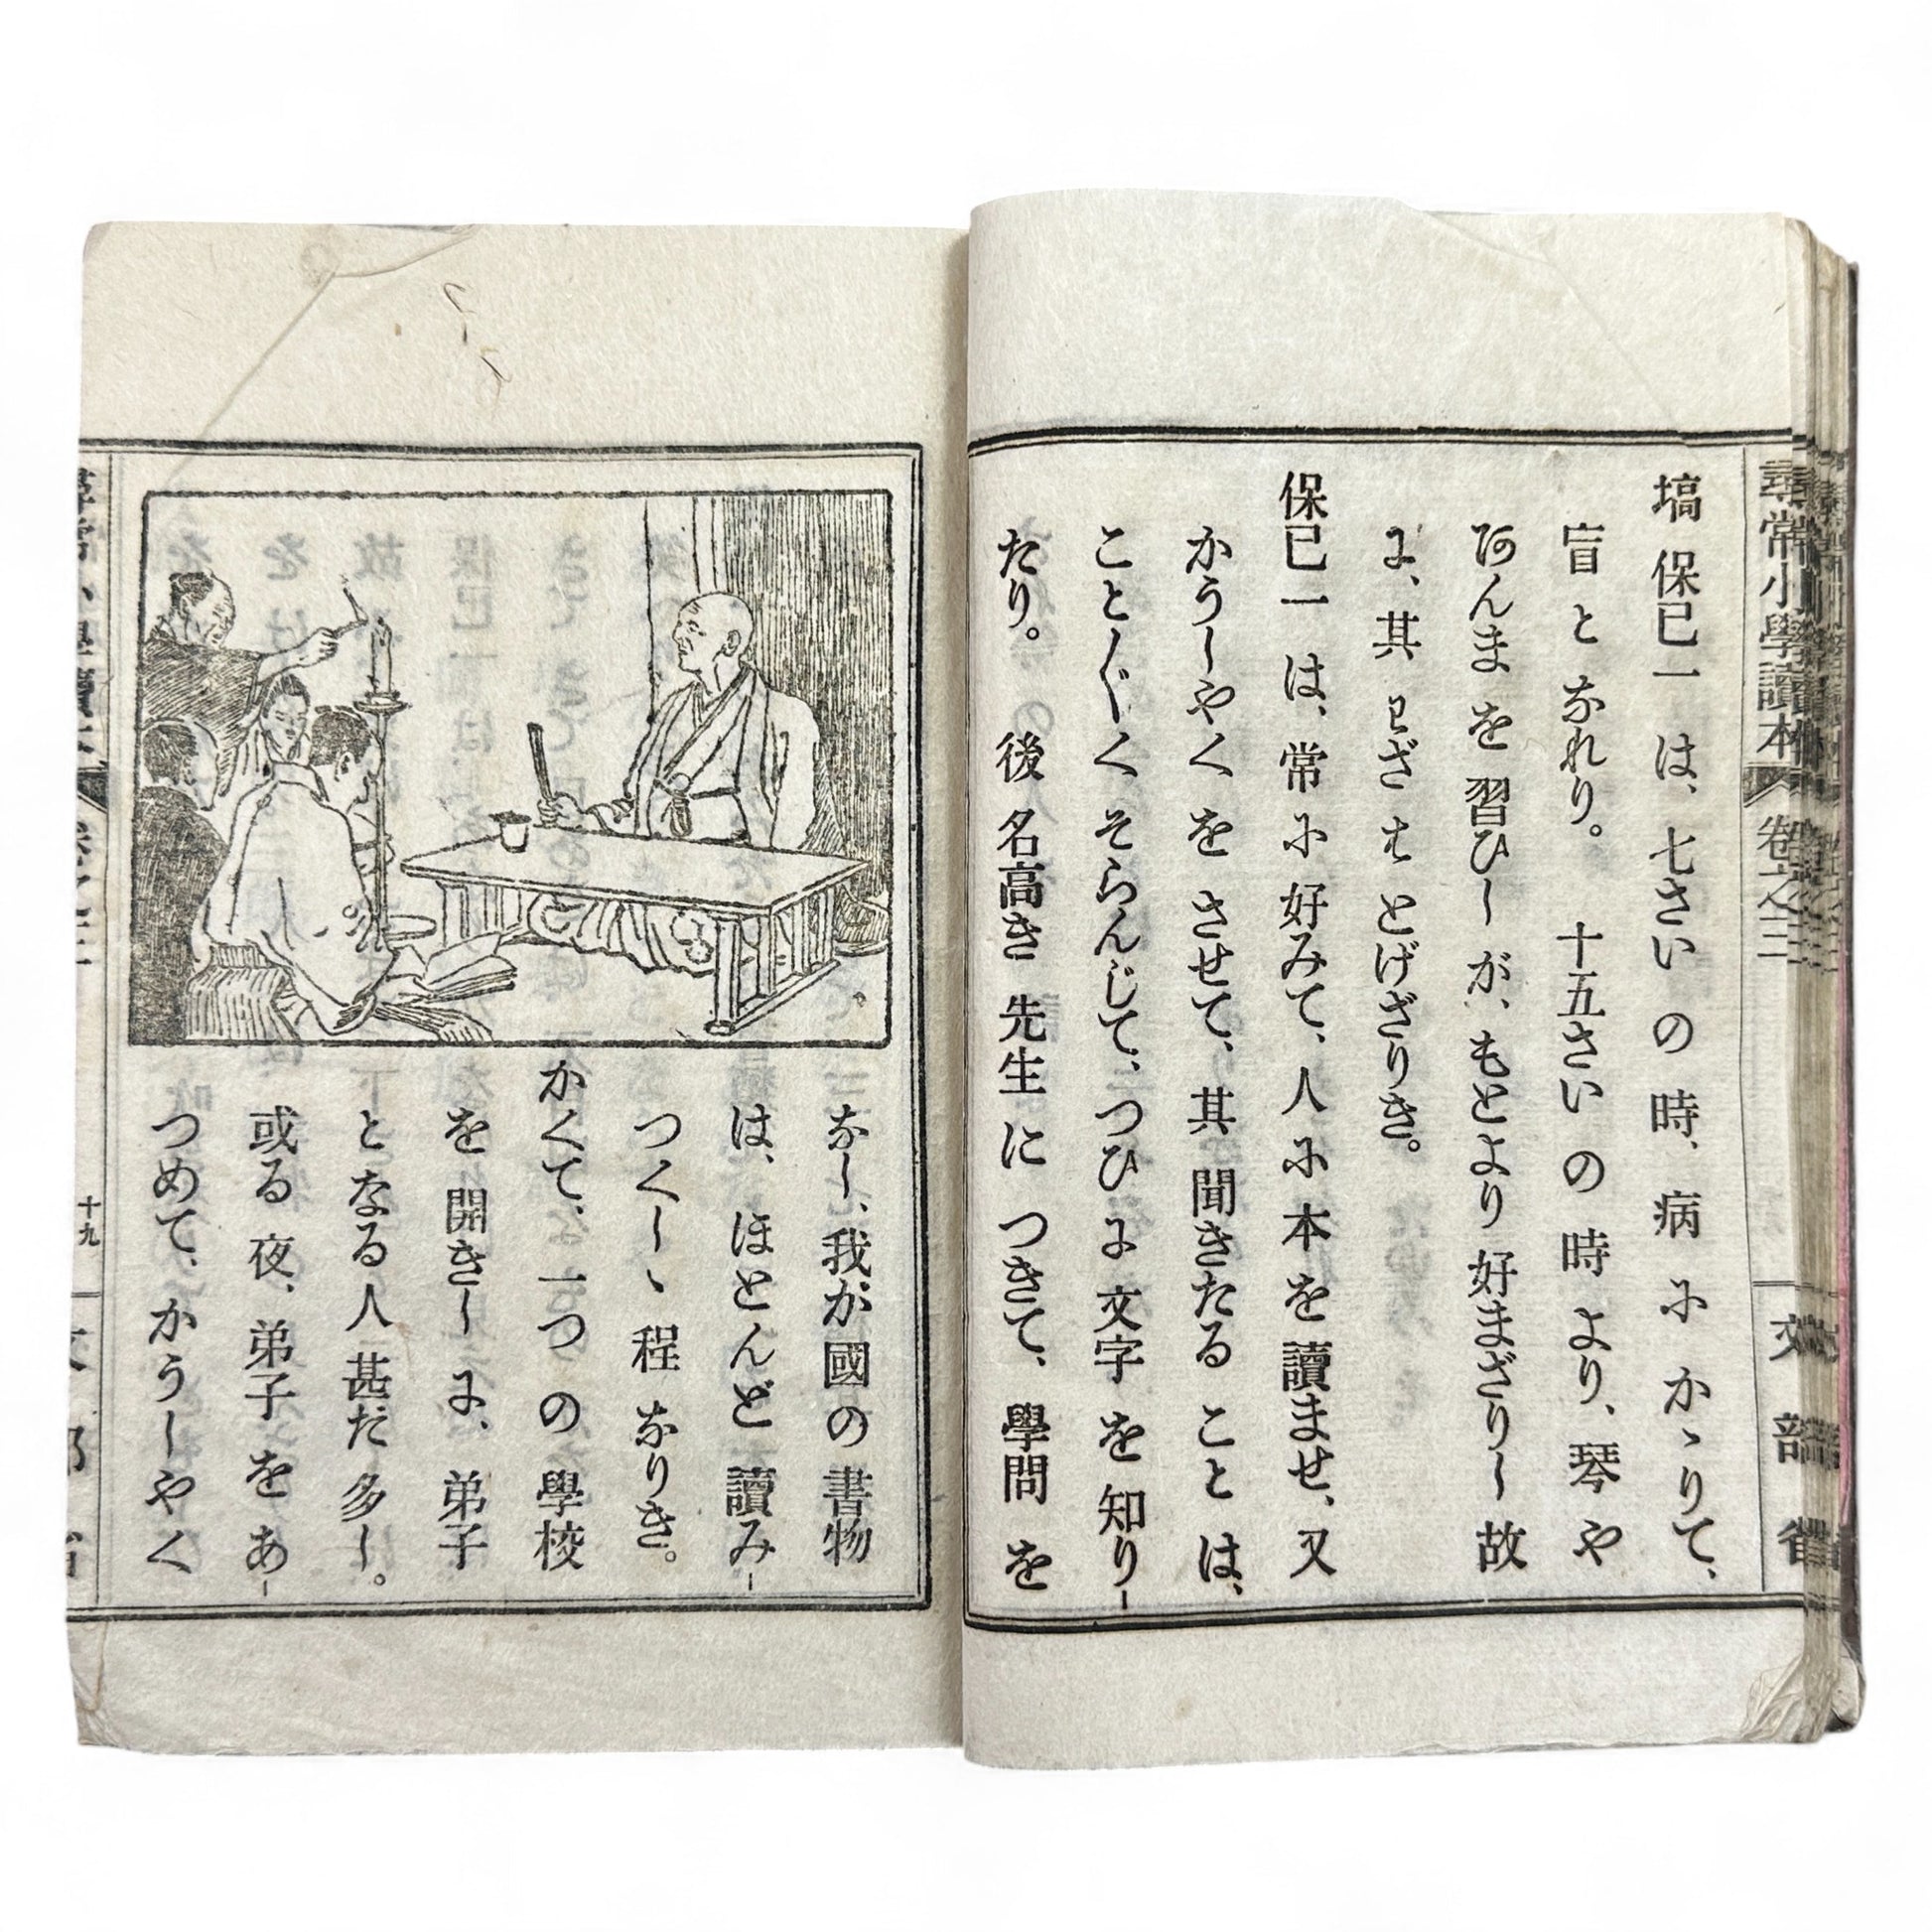 尋常小學讀本 卷之三 文部省
塙保已一は、七さいの時、病にかゝりて、
盲となれり。十五さいの時より、琴や
あんまを習ひしが、もとより好まざりし故
に、其わざをとげざりき。
保已一は、常に好みて、人に本を讀ませ、又
かうしやくをさせて、其聞きたることは、
こと〴〵くそらんじて、つひに文字を知り-
たり。後名高き先生につきて、學問を
なし、我が國の書物
は、ほとんど讀み-
つくしゝ程なりき。
かくて、一つの學校
を開きしに、弟子
となる人甚だ多し。
或る夜、弟子をあ-
つめて、かうしやく
十九